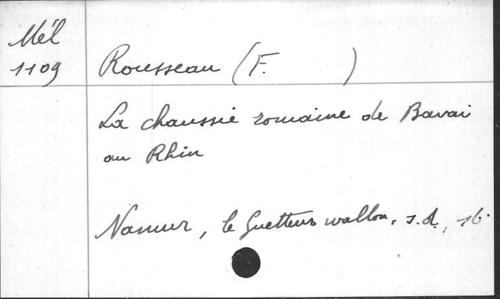 Mél
1109
Rousseau (F. )
La chaussée romaine de Bavai
au Rhin
Namur, le Guetteur wallon, s.d., 16.